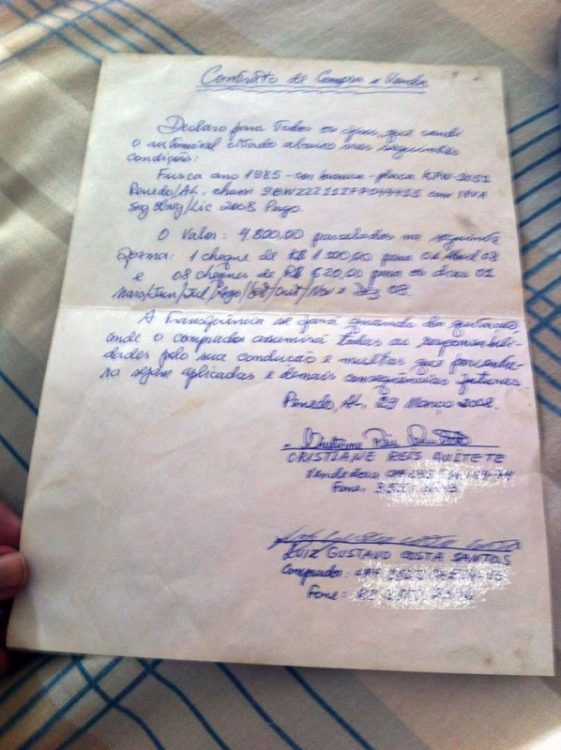 Contrato de Compra e Venda
Declaro para todos os que vendi
o automóvel citado abaixo nas seguintes
condições:
Fusca ano 1985 - cor branca - placa
Penedo/AL. chassi com IPVA
Seg /Lic 2008 Pago.
O Valor: 4.800,00 parcelados na seguinte
forma: 1 cheque de R$ para 01 Abril 08
e 08 cheques de R$ 620,00 para os dias 01
Maio/Jun/Jul/Ago/Set/Out/Nov e Dez 08.
A transferência se fará quando da quitação
onde o comprador assumirá todas as responsabili-
dades pelo sua condução e multas que porventu-
ra sejam aplicadas e demais consequências futuras.
Penedo, AL, 29 Março 2008.
CRISTIANE REIS QUITETE
Vendedora CPF
Fone:
LUIZ GUSTAVO COSTA SANTOS
Comprador: CPF
Fone: